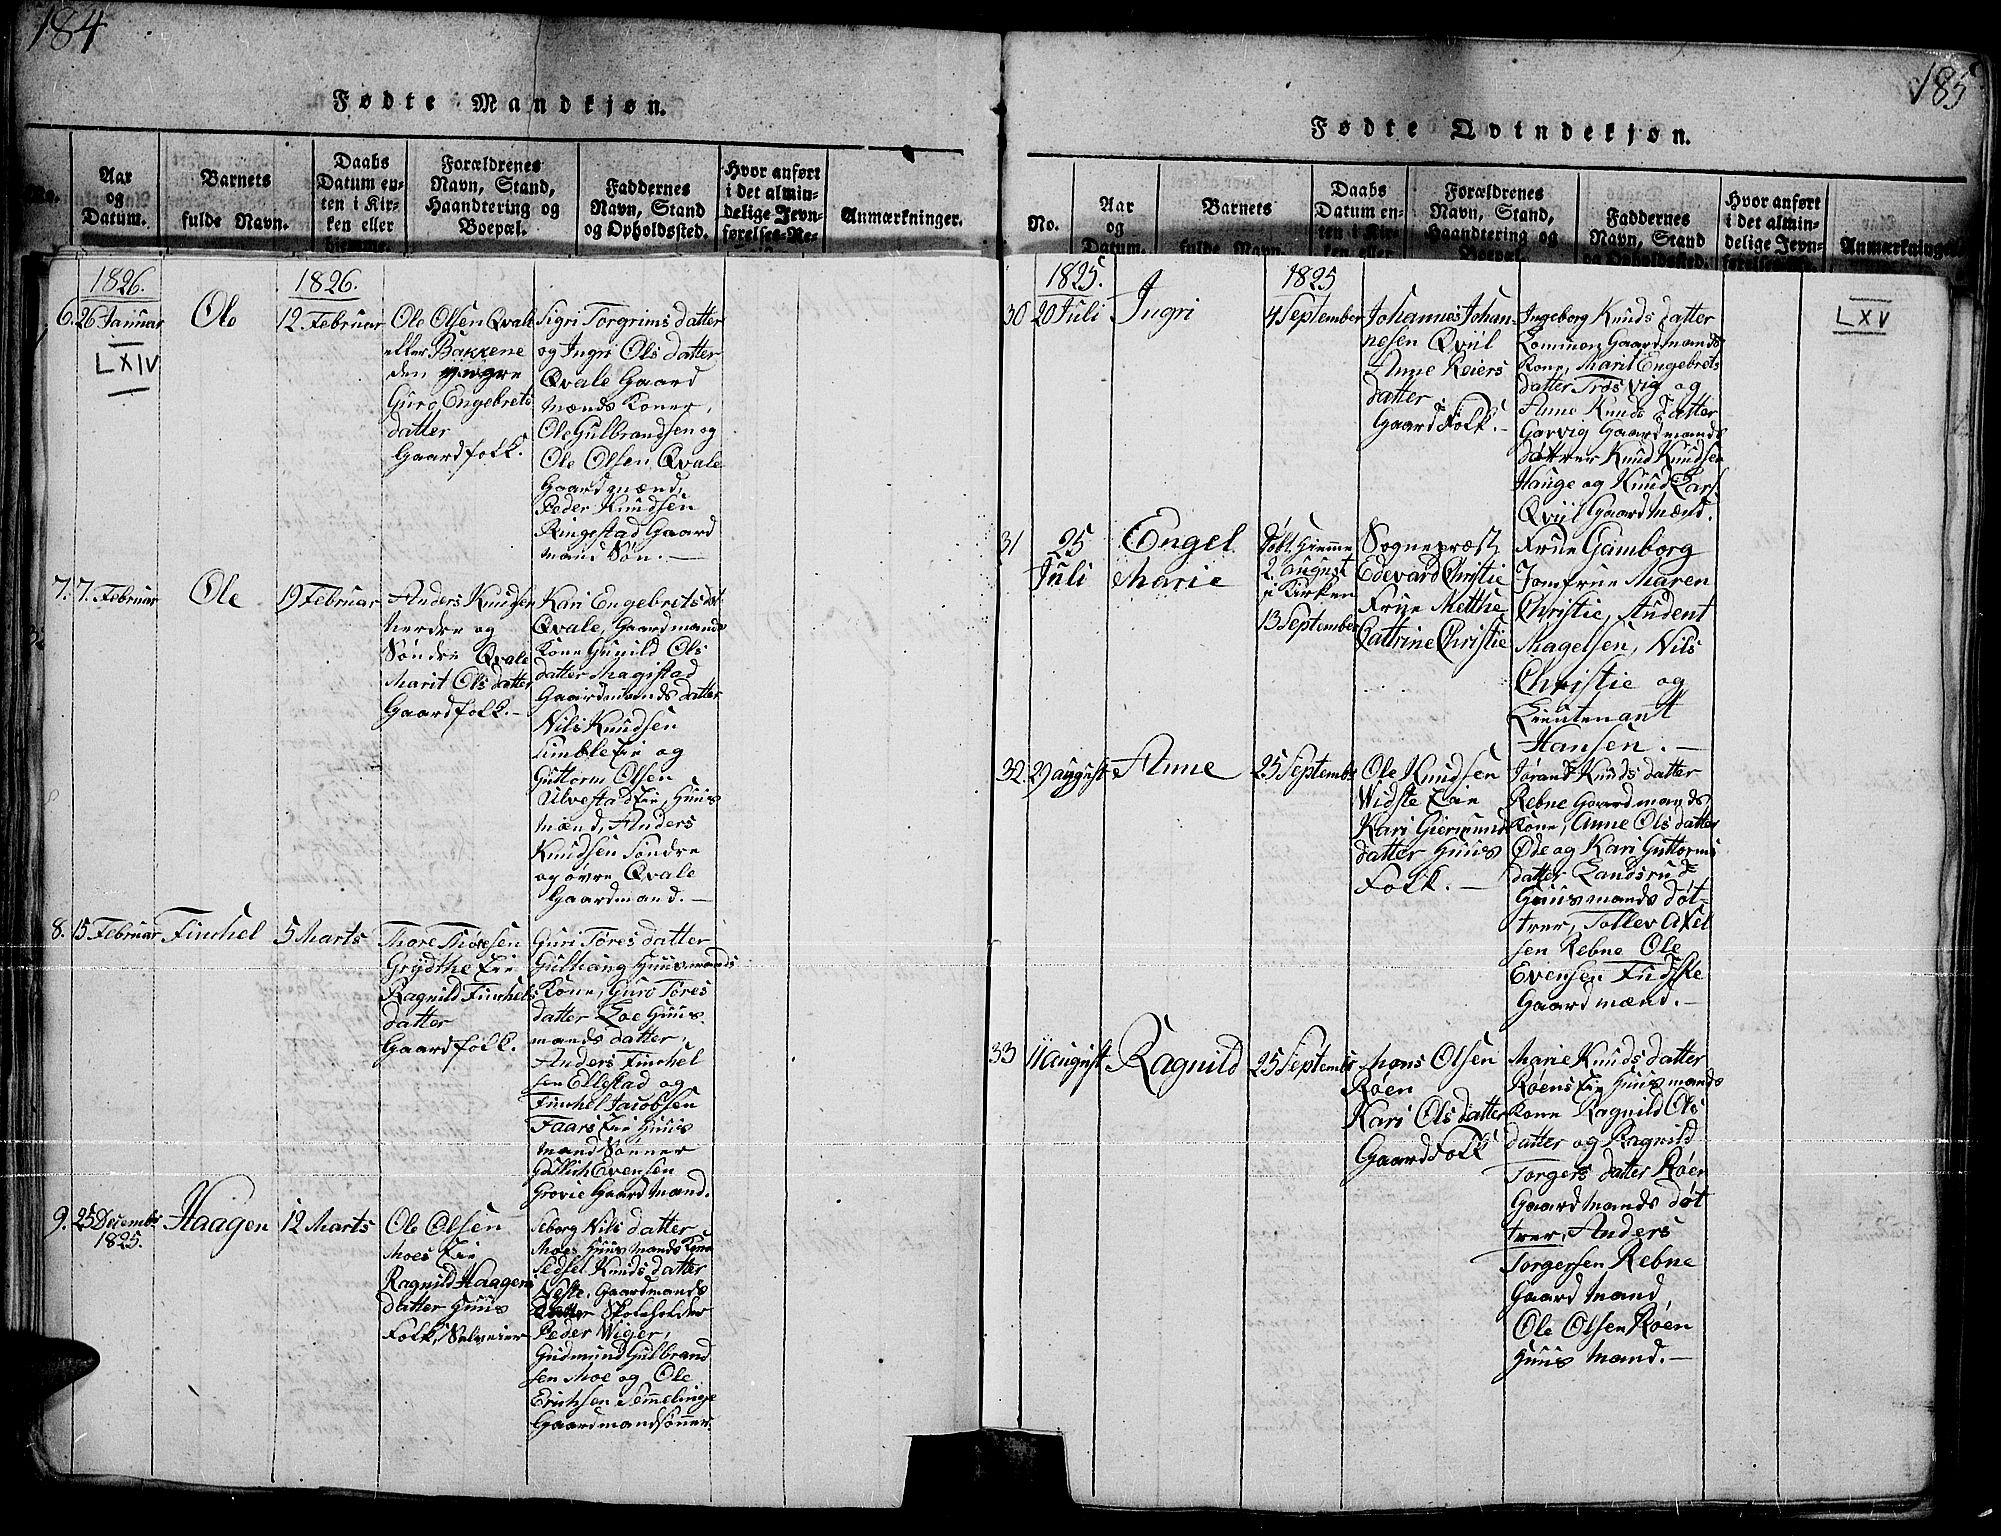 184
Fødte Mandkjøn.
No.
Aar
og
Datum.
Barnets
fulde Navn.
Daabs
Datum en-
ten i Kir-
ken eller
hiemme.
Forældrenes
Navn, Stand,
Haandtering og
Boepæl.
Faddernes
Navn, Stand
og Opholdssted.
Hvor anført
i det almin-
delige Jevn-
førelses-Re-
Anmærkninger.
1826.
6. 26 Januar
LXIV
Ole
1826.
12 Februar
Ole Olsen Qvale
eller Bakkene
den yngre
Guro Engebrets
datter
Gaardfolk.
Sigri Torgrims datter
og Ingri Ols datter
Qvale Gaard
mænds Koner,
Ole Gulbrandsen og
Ole Olsen Qvale
Gaardmænd,
Peder Knudsen
Ringestad Gaard
mand Søn. —
7. 7. Februar
Ole
19 Februar
Anders Knudsen
nerdre og
Søndre Qvale
Marit Ols datter
Gaardfolk. —
Kari Engebrets dat
Qvale, Gaardmands
Kone Gunild Ols
datter Magistad
Gaardmands datter
Nils Knudsen
Eie og
Guttorm Olsen
Ulvestad Eie, Huus
mænd, Anders
Knudsen Søndre
og øvre Qvale
Gaardmand. —
8. 15 Februar
Finchel
5 Marts
Thore Thoresen
Grydthe Eie
Ragnild Finchels
datter
Gaardfolk.
Guri Tores datter
Gulhang Huusmands
Kone, Guro Tores
datter Loe Huus
mands datter,
Anders Finchel
sen Ellestad og
Finchel Jacobsen
Faars Eie Huus
mand Sønner
Gullich Evensen
Grovie Gaardmand.
9. 25 Decembr
1825.
Haagen
12 Marts
Ole Olsen
Moes Eie
Ragnild Haagens
datter Huus
Folk, Selveier
Seborg Nils datter
Moes Huusmands Kone
Sedsel Knuds datter
Neste, Gaardmands
Datter Skoleholder
Peder Wiger,
Gudmund Gulbrand
sen Moe og Ole
Erichsen Semelinge
Gaardmandsønner
185
Fødte Qvindekjøn.
No.
Aar
og
Datum.
Barnets
fulde Navn.
Daabs
Datum en-
ten i Kir-
ken eller
Forældrenes
Navn, Stand,
Haandtering og
Boepæl.
Faddernes
Navn, Stand
og Opholdssted.
Hvor anført
i det almin-
delige Jevn-
førelses-Re-
Anmærkninger.
1825.
30 20 Juli
Ingri
1825
4 September
Johannes Johan-
nesen Qviil
Anne Reiers
datter
Gaard Folk. —
Ingeborg Knuds datter
Lommen Gaardmands
Kone, Marit Engebrets
datter Trøsvig og
Anne Knuds Datter
Garvig Gaardmands
døttrer Knud Knudsen
Hauge og Knud Lars
Qviil Gaardmænd.
LXV
31 25
Juli
Engel
Marie
døbt Hiemme
2. August
i Kirken
13 September
Sognepræst
Edevard Christie
Frue Metthe
Cattrine Christie
Frue Gamborg
Jomfrue Maren
Christie, Student
Magelsen, Nils
Christie og
Lieutenant
Hansen. —
32. 29 august
Anne
25 Septembr
Ole Knudsen
Widste Eie
Kari Giermund
datter Huus
Folk. —
Jørand Knuds datter
Rebne Gaardmands
Kone, Anne Ols datter
Øde og Kari Guttorms
datter Landsrud
Huusmands døt-
trer, Tollev Axel
sen Rebne Ole
Evensen Fudske
Gaardmænd. —
33 11 august
Ragnild
25 Septembr
Mons Olsen
Røen
Kari Ols datter
Gaard Folk
Marie Knuds datter
Røens Eie Huusmands
Kone Ragnild Ols
datter og Ragnild
Torgers datter Røen
Gaardmands døt
trer, Anders
Torgersen Rebne
Gaard Mand
Ole Olsen Røen
Huus Mand. —